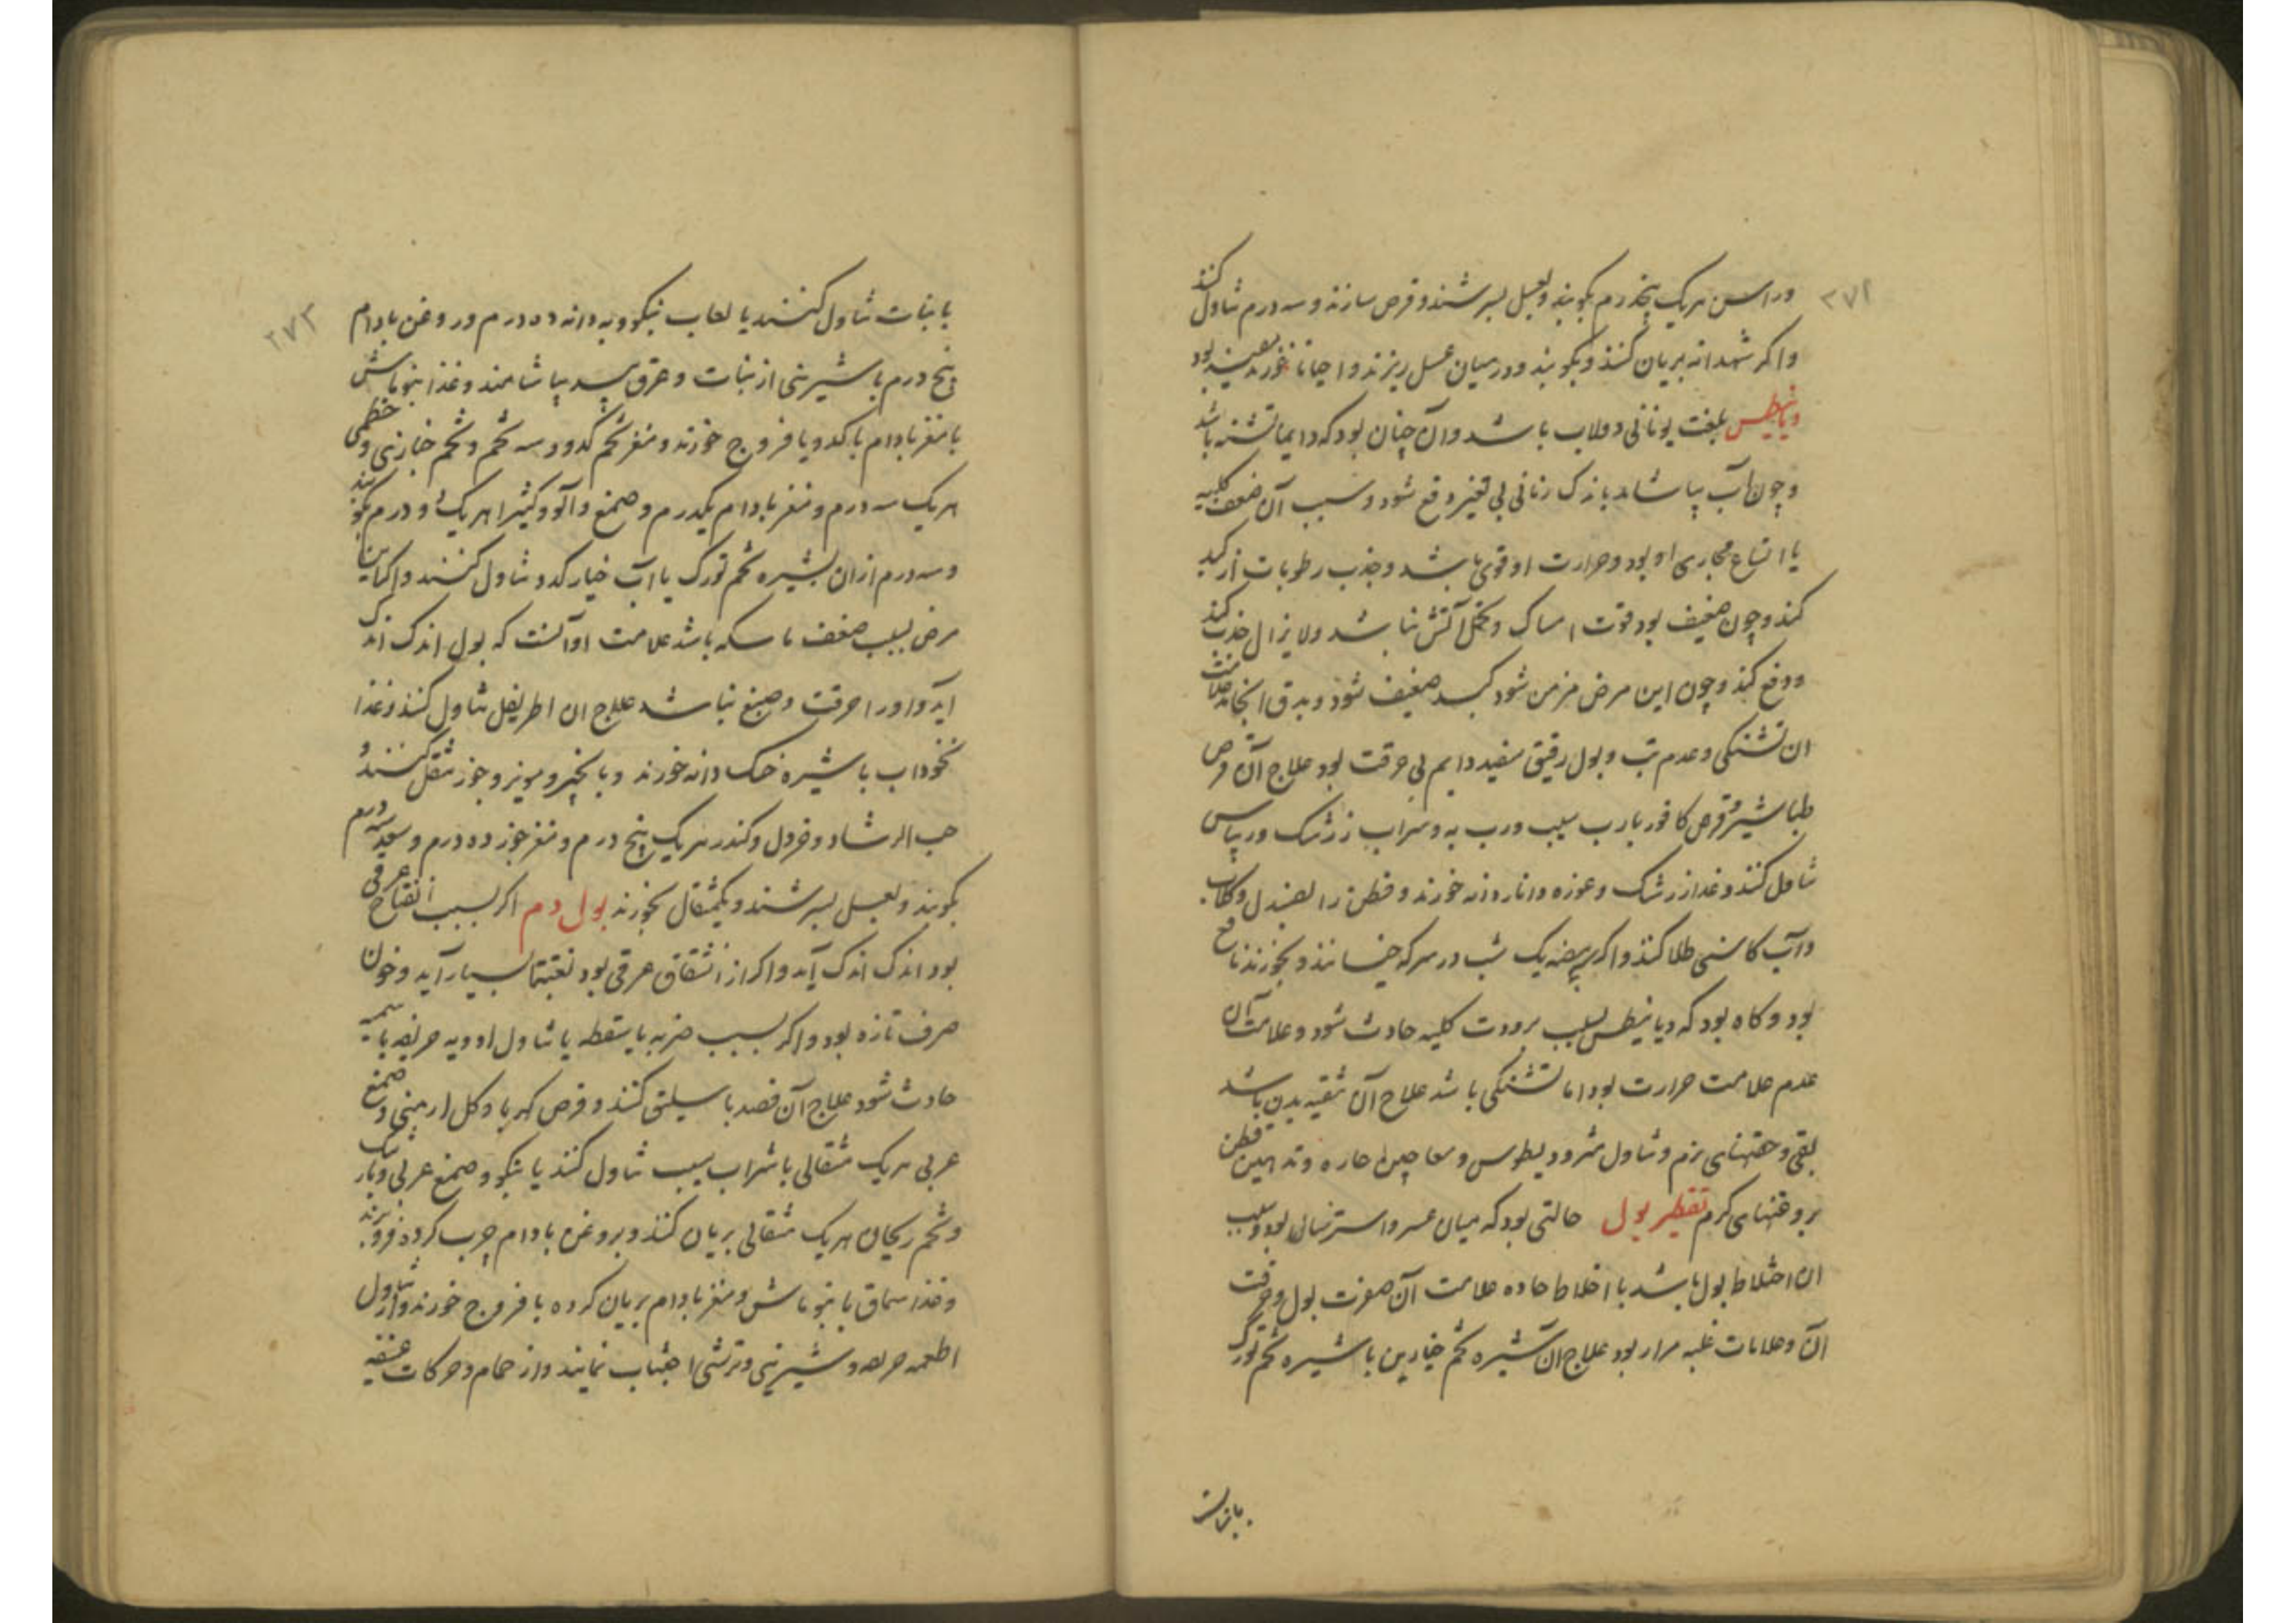 ۲۷۲
وراسن هریک پنجدرم بکوبند و بعسل بسرشند و قرص سازند و سه درم تناول کنند
و اکر شهدانه بریان کنند و بکوبند و در میان عسل ریزند و احیانا بخورند مفید بود
دیانیطس بلغت یونانی دولاب باشد و آن چنان بود که دایما تشنه باشد
و چون آب بیاشامد باندک زمانی بی تغیر دفع شود و سبب آن ضعف کلیه
یا اتساع مجاری او بود و حرارت او قوی باشد و جذب رطوبات از کبد
کند و چون ضعیف بود قوت امساک و تحمل آتش نباشد و لایزال جذب کند
و دفع کند و چون این مرض مزمن شود کبد ضعیف شود و بدق انجامد علامت
ان تشنکی و عدم تب و بول رقیق سفید دایم بی حرقت بود علاج آن قرص
طباشیر و قرص کافور با رب سیب و رب به و شراب زرشک و ریباس
تناول کنند و غذا زرشک و غوره و اناردانه خورند و قطن را بصندل و کلاب
و آب کاسنی طلا کنند و اکر بیضه یک شب در سرکه خیسانند و بخورند نافع
بود و کاه بود که دیانیطس بسبب برودت کلیه حادث شود و علامت آن
عدم علامت حرارت بود اما تشنکی باشد علاج آن تنقیه بدن باشد
بقی و حقنهای نرم و تناول مثرودیطوس و معاجین حاره و تدهین قطن
بروغنهای کرم تقطیر بول حالتی بود که میان عسر و استرسال بود و سبب
ان اختلاط بول باشد با اخلاط حاده علامت آن صفرت بول و حرقت
آن و علامات غلبه مرار بود علاج آن شیره تخم خیارین با شیره تخم تورک
بانبات
۲۷۳
بانبات تناول کنند یا لعاب بنکو و به دانه ده درم و روغن بادام
پنج درم با شیرینی از نبات و عرق بید بیاشامند و غذا بنوماش
با مغز بادام با کدو یا فروج خورند و مغز تخم کدو و سه تخم و تخم خبازی و خطمی
هریک سه درم و مغز بادام یکدرم و صمغ و آلو و کثیرا هریک دو درم بکوبند
و سه درم از ان بشیره تخم تورک یا آب خیار کدو تناول کنند و اکر این
مرض بسبب ضعف ماسکه باشد علامت او آنست که بول اندک اندک
آید و اورا حرقت و صبغ نباشد علاج ان اطریفل تناول کنند و غذا
نخوداب با شیره خسک دانه خورند و بانجیر و مویز و جوز تنقل کنند و
حب الرشاد و خردل و کندر هریک پنج درم و مغز جوز ده درم و سعد سه درم
بکوبند و بعسل بسرشند و یکمثقال بخورند بول دم اکر بسبب انفتاح عرقی
بود اندک اندک آید و اکر از انشقاق عرقی بود بغتتا بسیار آید و خون
صرف تازه بود و اکر بسبب ضربه یا سقطه یا تناول ادویه حریفه یا سمیه
حادث شود علاج آن فصد باسلیق کنند و قرص کهربا و کل ارمنی و صمغ
عربی هریک مثقالی با شراب سیب تناول کنند یا بنکو و صمغ عربی و بارتنک
و تخم ریحان هریک مثقالی بریان کنند و بروغن بادام چرب کرده فرو برند
و غذا سماق با بنوماش و مغز بادام بریان کرده با فروج خورند و از تناول
اطعمه حریفه و شیرینی و ترشی اجتناب نمایند و از حمام و حرکات عنیفه